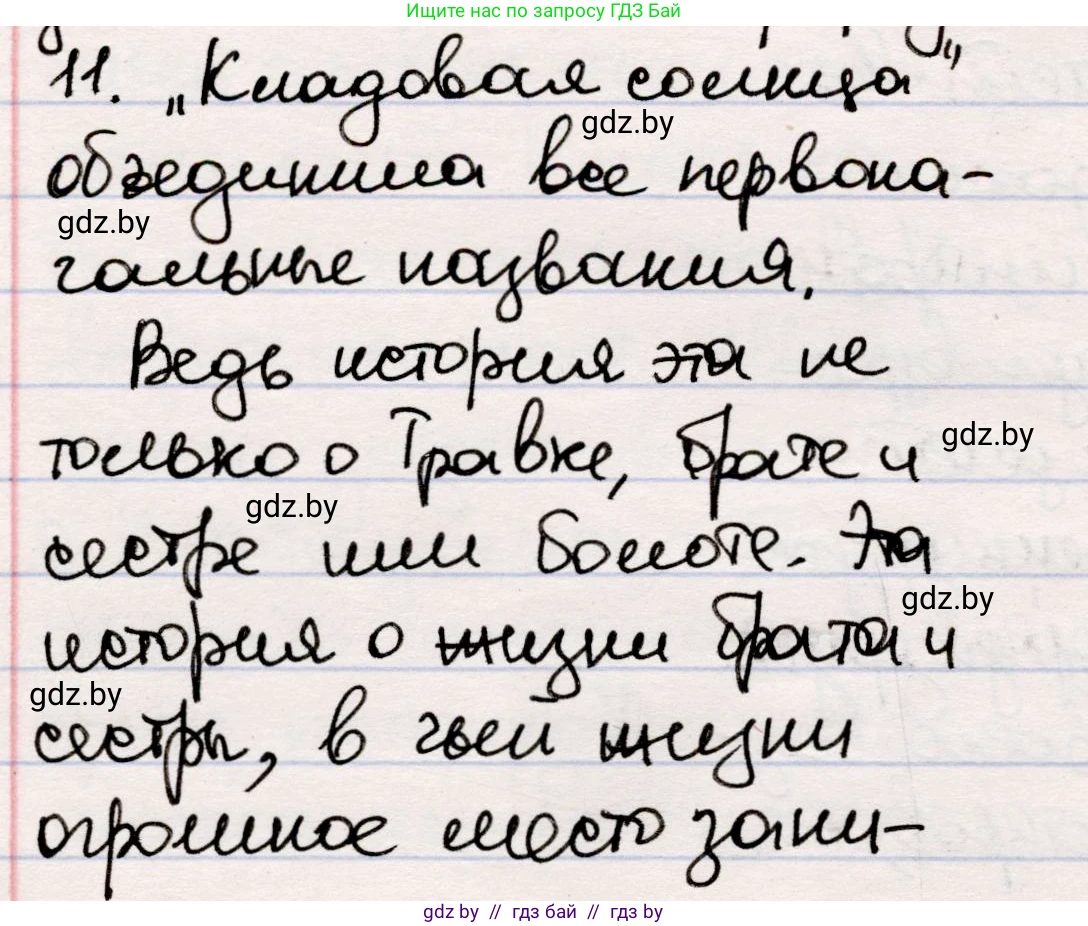 Ищите нас по запросу ГДЗ Бай
11. „Кладовая солнца"
gdz.by
объединила все первона-
gdz.by
чальные названия.
Ведь история эта не
только о Травке, брате и
gdz.by
gdz.by
сестре или болоте. Эта
gdz.by
история о жизни брата и
gdz.by
сестры, в чьей жизни
огромное место зани-
gdz.by // гдз бай // гдз by